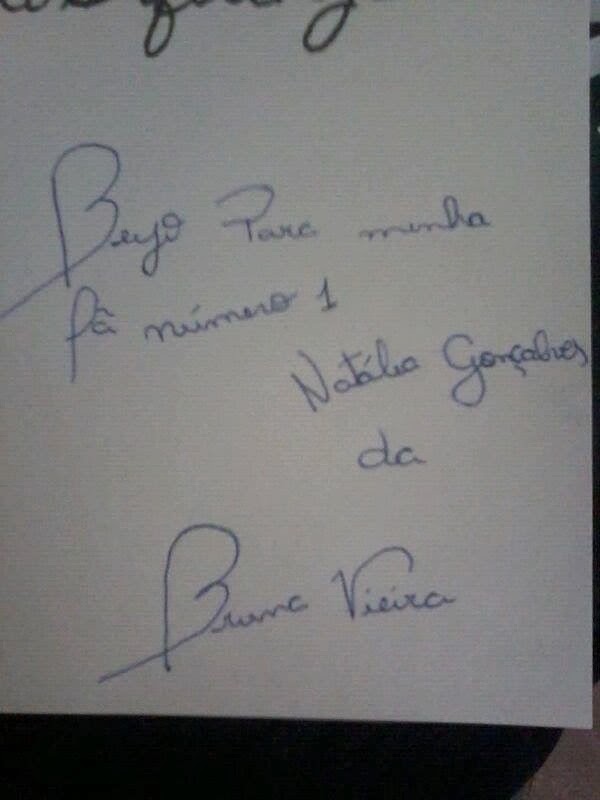 Beijo Para minha
fã número 1
Natália Gonçalves
da
Bruna Vieira